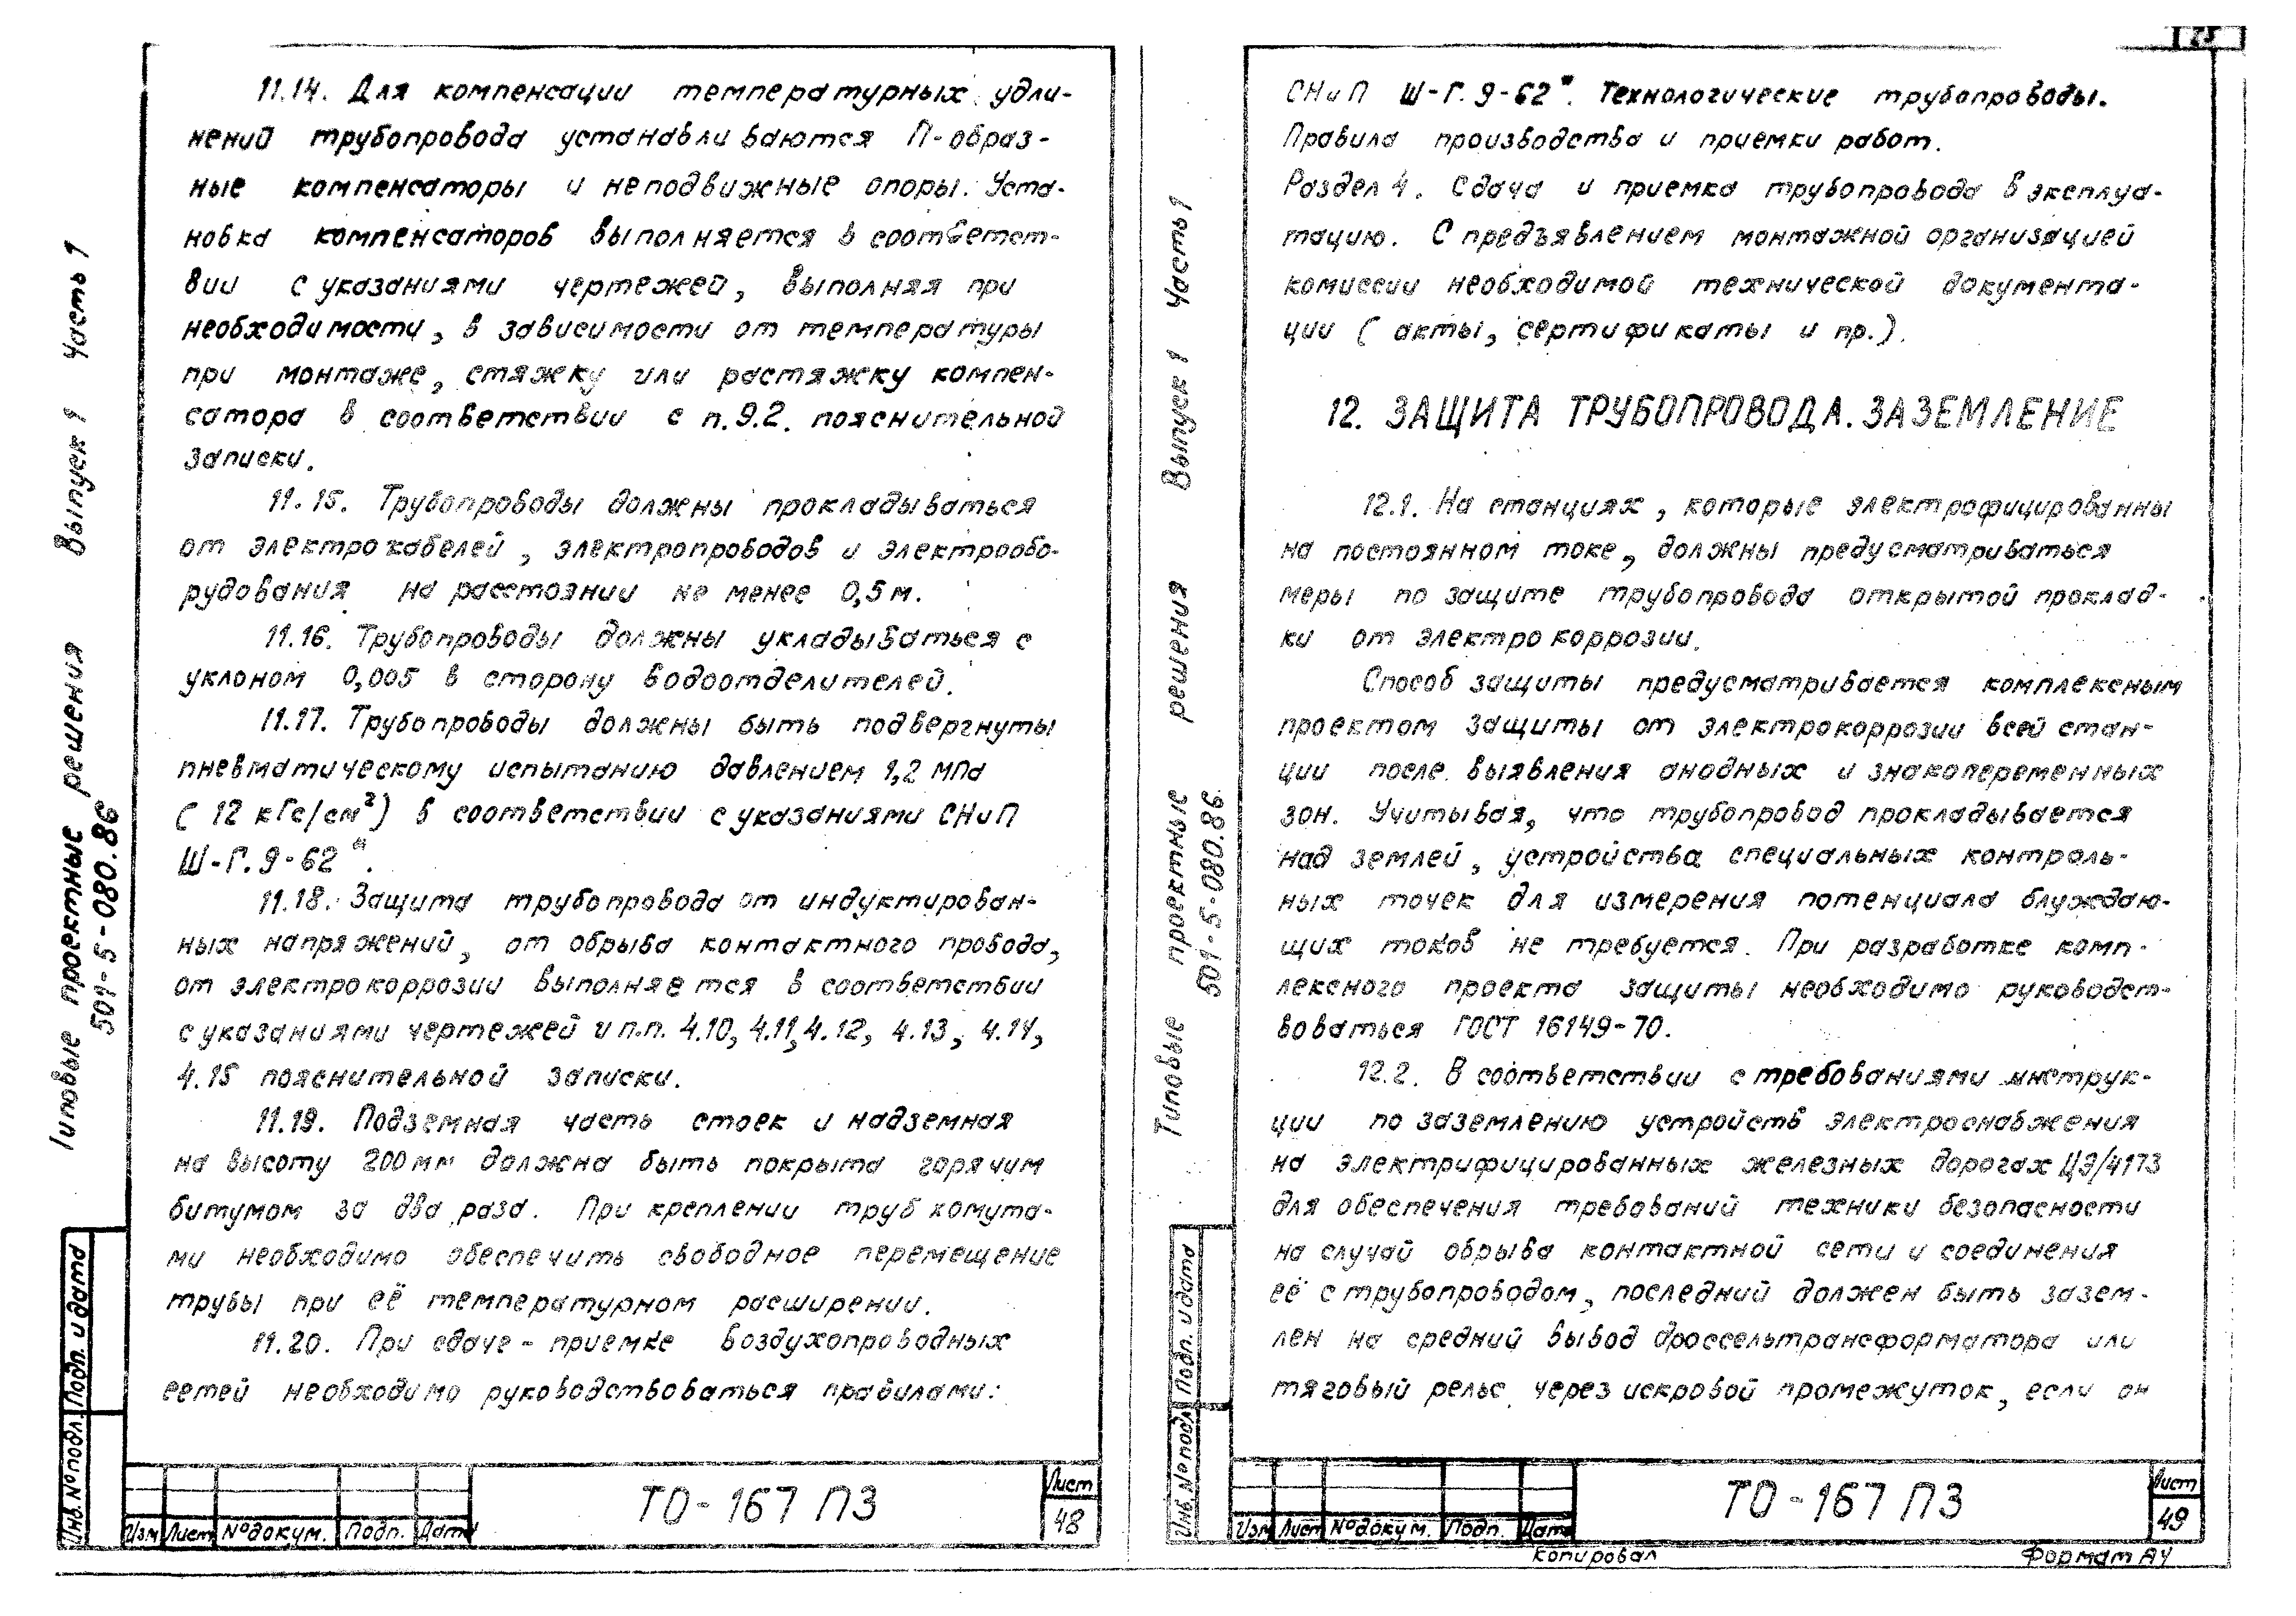 11.14. Для компенсации температурных удли-
нений трубопровода устанавливаются П-образ-
ные компенсаторы и неподвижные опоры. Уста-
новка компенсаторов выполняется в соответст-
вии с указаниями чертежей, выполняя при
необходимости, в зависимости от температуры
при монтаже, стяжку или растяжку компен-
сатора в соответствии с п.9.2. пояснительной
записки.
11.15. Трубопроводы должны прокладываться
от электрокабелей, электропроводов и электрообо-
рудования на расстоянии не менее 0,5м.
11.16. Трубопроводы должны укладываться с
уклоном 0,005 в сторону водоотделителей.
11.17. Трубопроводы должны быть подвергнуты
пневматическому испытанию давлением 1,2 МПа
(12 кГс/см²) в соответствии с указаниями СНиП
Ш-Г.9-62*.
11.18. Защита трубопровода от индуктирован-
ных напряжений, от обрыва контактного провода,
от электрокоррозии выполняется в соответствии
с указаниями чертежей и п.п. 4.10, 4.11, 4.12, 4.13, 4.14,
4.15 пояснительной записки.
11.19. Подземная часть стоек и надземная
на высоту 200мм должна быть покрыта горячим
битумом за два раза. При креплении труб хомута-
ми необходимо обеспечить свободное перемещение
трубы при её температурном расширении.
11.20. При сдаче-приемке воздухопроводных
сетей необходимо руководствоваться правилами:
Типовые проектные решения Выпуск 1 Часть 1
501-5-080.86
Инв. № подл. Подп. и дата
Изм Лист № докум. Подп. Дата
ТО-167 ПЗ
Лист
48
25
СНиП Ш-Г.9-62*. Технологические трубопроводы.
Правила производства и приемки работ.
Раздел 4. Сдача и приемка трубопровода в эксплуа-
тацию. С предъявлением монтажной организацией
комиссии необходимой технической документа-
ции (акты, сертификаты и пр.).
12. ЗАЩИТА ТРУБОПРОВОДА. ЗАЗЕМЛЕНИЕ
12.1. На станциях, которые электрофицированны
на постоянном токе, должны предусматриваться
меры по защите трубопровода открытой проклад-
ки от электрокоррозии.
Способ защиты предусматривается комплексным
проектом защиты от электрокоррозии всей стан-
ции после выявления анодных и знакопеременных
зон. Учитывая, что трубопровод прокладывается
над землей, устройства специальных контроль-
ных точек для измерения потенциала блуждаю-
щих токов не требуется. При разработке комп-
лексного проекта защиты необходимо руководст-
воваться ГОСТ 16149-70.
12.2. В соответствии с требованиями инструк-
ции по заземлению устройств электроснабжения
на электрифицированных железных дорогах ЦЭ/4173
для обеспечения требований техники безопасности
на случай обрыва контактной сети и соединения
её с трубопроводом, последний должен быть зазем-
лен на средний вывод дроссельтрансформатора или
тяговый рельс через искровой промежуток, если он
Типовые проектные решения Выпуск 1 Часть 1
501-5-080.86
Инв. № подл Подп. и дата
Изм Лист № докум. Подп. Дата
ТО-167 ПЗ
Лист
49
Копировал
Формат А4